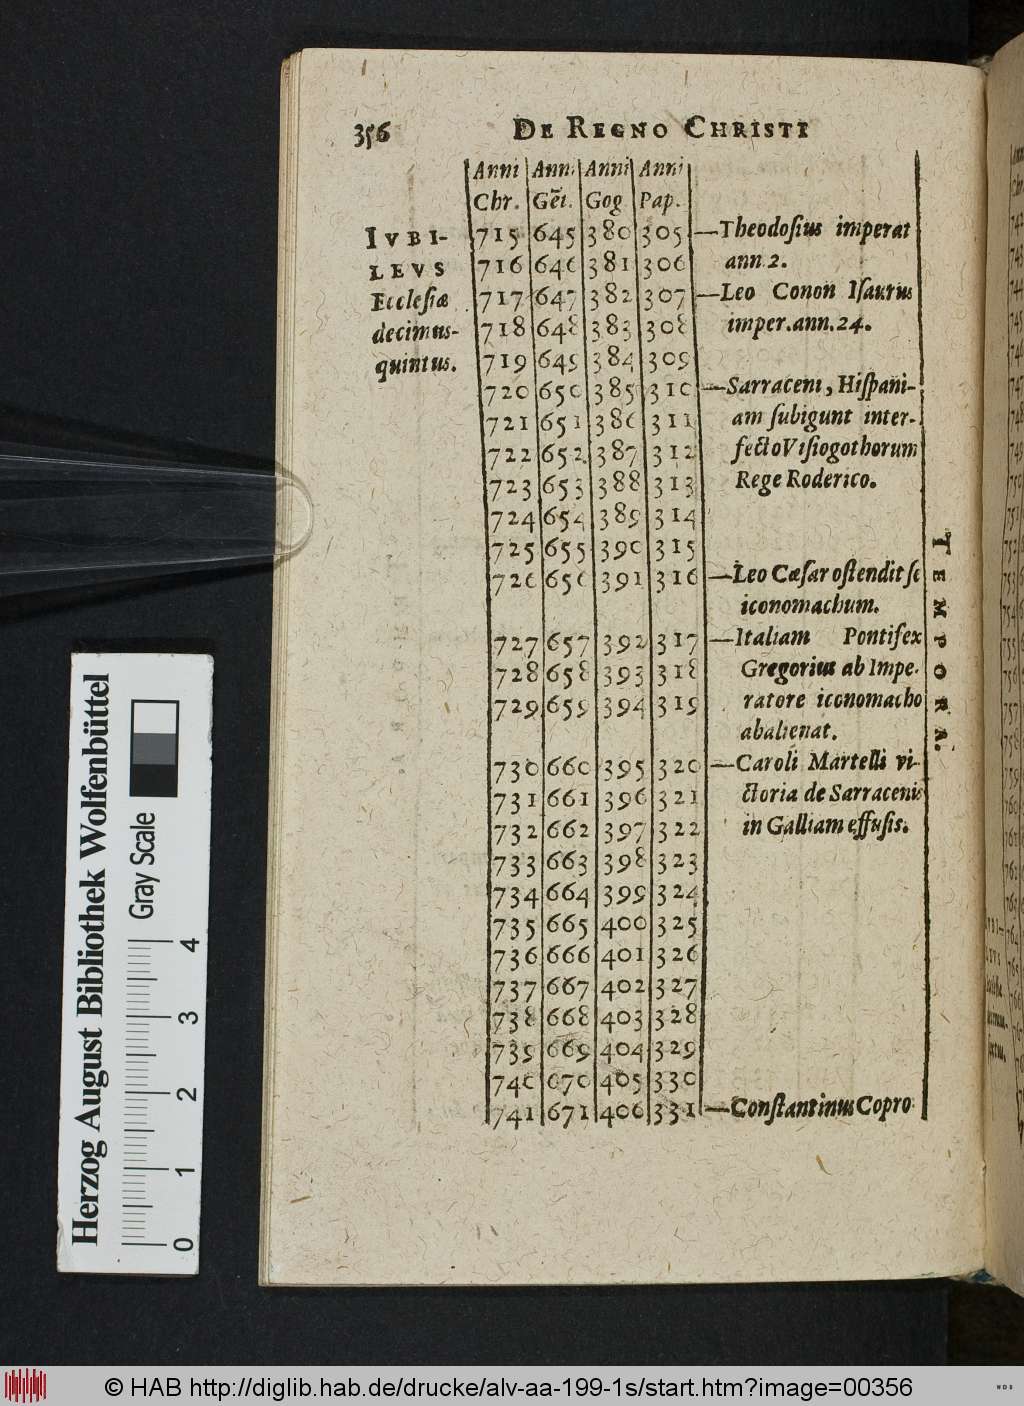 356
DE REGNO CHRISTI
Anni Anni Anni Anni
Chr. Gēt. Gog. Pap.
IVBI-
LEVS
Ecclesiæ
decimus-
quintus.
715 645 380 305 —Theodosius imperat
716 646 381 306 ann. 2.
717 647 382 307 —Leo Conon Isaurus
718 648 383 308 imper. ann. 24.
719 649 384 309
720 650 385 310 —Sarraceni, Hispani-
721 651 386 311 am subigunt inter-
722 652 387 312 fecto Visiogothorum
723 653 388 313 Rege Roderico.
724 654 389 314
725 655 390 315
726 656 391 316 —Leo Cæsar ostendit se
iconomachum.
727 657 392 317 —Italiam Pontifex
728 658 393 318 Gregorius ab Impe-
729 659 394 319 ratore iconomacho
abalienat.
730 660 395 320 —Caroli Martelli vi-
731 661 396 321 ctoria de Sarracenis
732 662 397 322 in Galliam effusis.
733 663 398 323
734 664 399 324
735 665 400 325
736 666 401 326
737 667 402 327
738 668 403 328
739 669 404 329
740 670 405 330
741 671 406 331 —Constantinus Copro
TEMPORA.
Herzog August Bibliothek Wolfenbüttel
Gray Scale
0 1 2 3 4
© HAB http://diglib.hab.de/drucke/alv-aa-199-1s/start.htm?image=00356